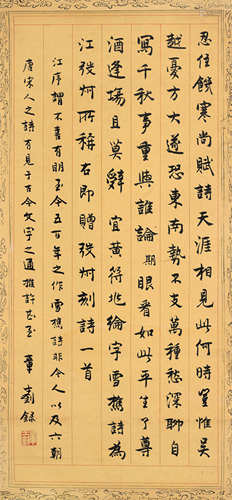 忍住饑寒尚賦詩天涯相見此何時豈惟吳
越憂方大遂恐東南勢不支萬種愁深聊自
寫千秋事重與誰論期眼看如此平生了尊
酒逢場且莫辭 宜黃符兆綸字雪樵詩為
江弢叔所稱右即贈弢叔刻詩一首
江序謂不喜有明至今五百年之作雪樵詩非今人以及六朝
唐宋人之詩有見于古今文字之通推許甚至 劉